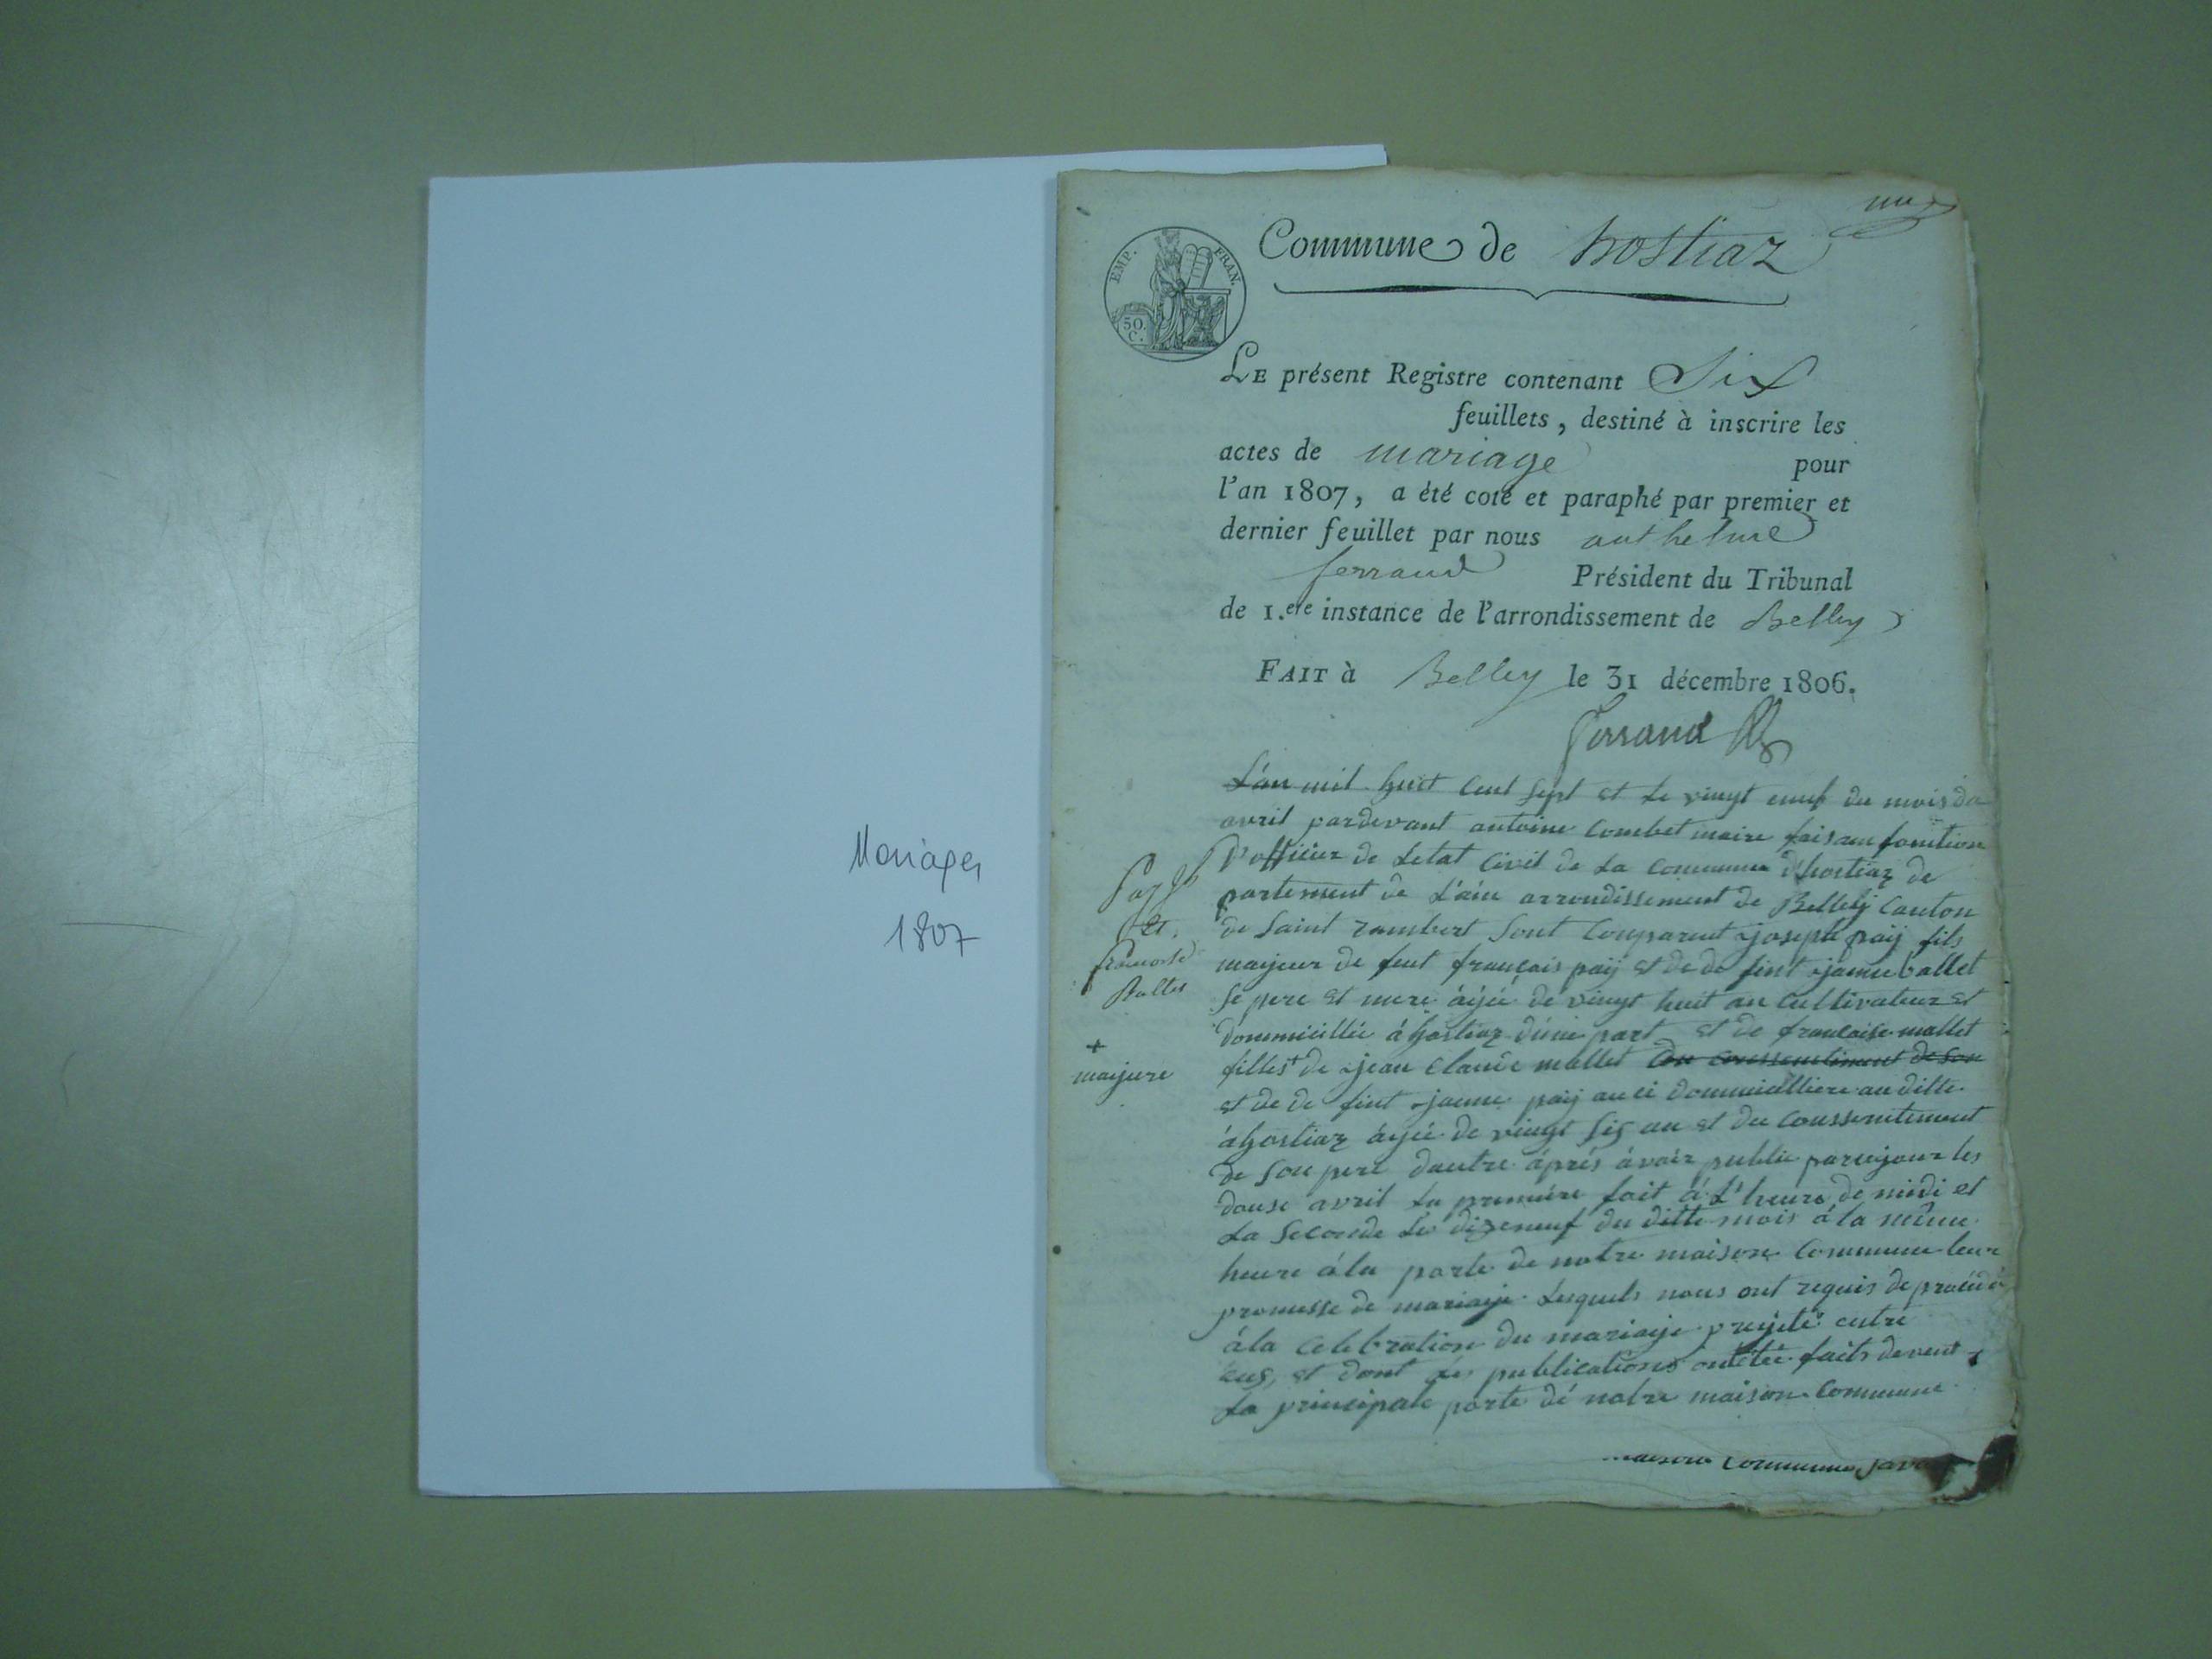 Mariages
1807
une
EMP. FRAN.
50.
C.
Commune de hostiaz
LE présent Registre contenant Six
feuillets, destiné à inscrire les
actes de mariage pour
l'an 1807, a été coté et paraphé par premier et
dernier feuillet par nous anthelme
ferrand Président du Tribunal
de 1.ere instance de l'arrondissement de Belley
FAIT à Belley le 31 décembre 1806.
Ferrand
L'an mil huit cent sept et le vingt neuf du mois da
avril pardevant antoine Combet maire faisant fonition
D'officier de Letat Civil de La commune d'hostiaz de
partement de L'ain arrondissement de Belleij Canton
de Saint rambert Sont Comparut joseph paij fils
maijeur de feut français paij et de de fint janne ballet
Se pere et mere áijé de vingt huit an Cultivateur et
dommicillie á hostiaz d'une part et de francaise mallet
filles + de jean Claude mallet du conssentiment de son
et de de fint janne paij auci dommicilliere au ditte
áhostiaz áijée de vingt six an et du Conssentement
de Son pere dautre áprés ávoir publie par
douse avril La premiére fait á L'heure de midi et
La Seconde Le dizeneuf du ditte mois á la même
heure ála porte de notre maison Commune leur
promesse de mariaije Lesquels nous ont requis de procédé
ála Celebration du mariaije projeté entre
eux, et dont Les publications ontétée faits devent
La principale porte dé notre maison Commune
et
+
maijure
maison Commune